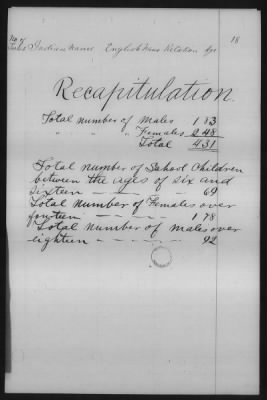 18
No of
Indian Names English Names Relation Age
Recapitulation.
Total number of Males 183
" " " Females 248
Total 431
Total number of School Children
between the ages of six and
sixteen — — — — 69
Total Number of Females over
fourteen — — — — 178
Total Number of males over
eighteen — — — — — 92